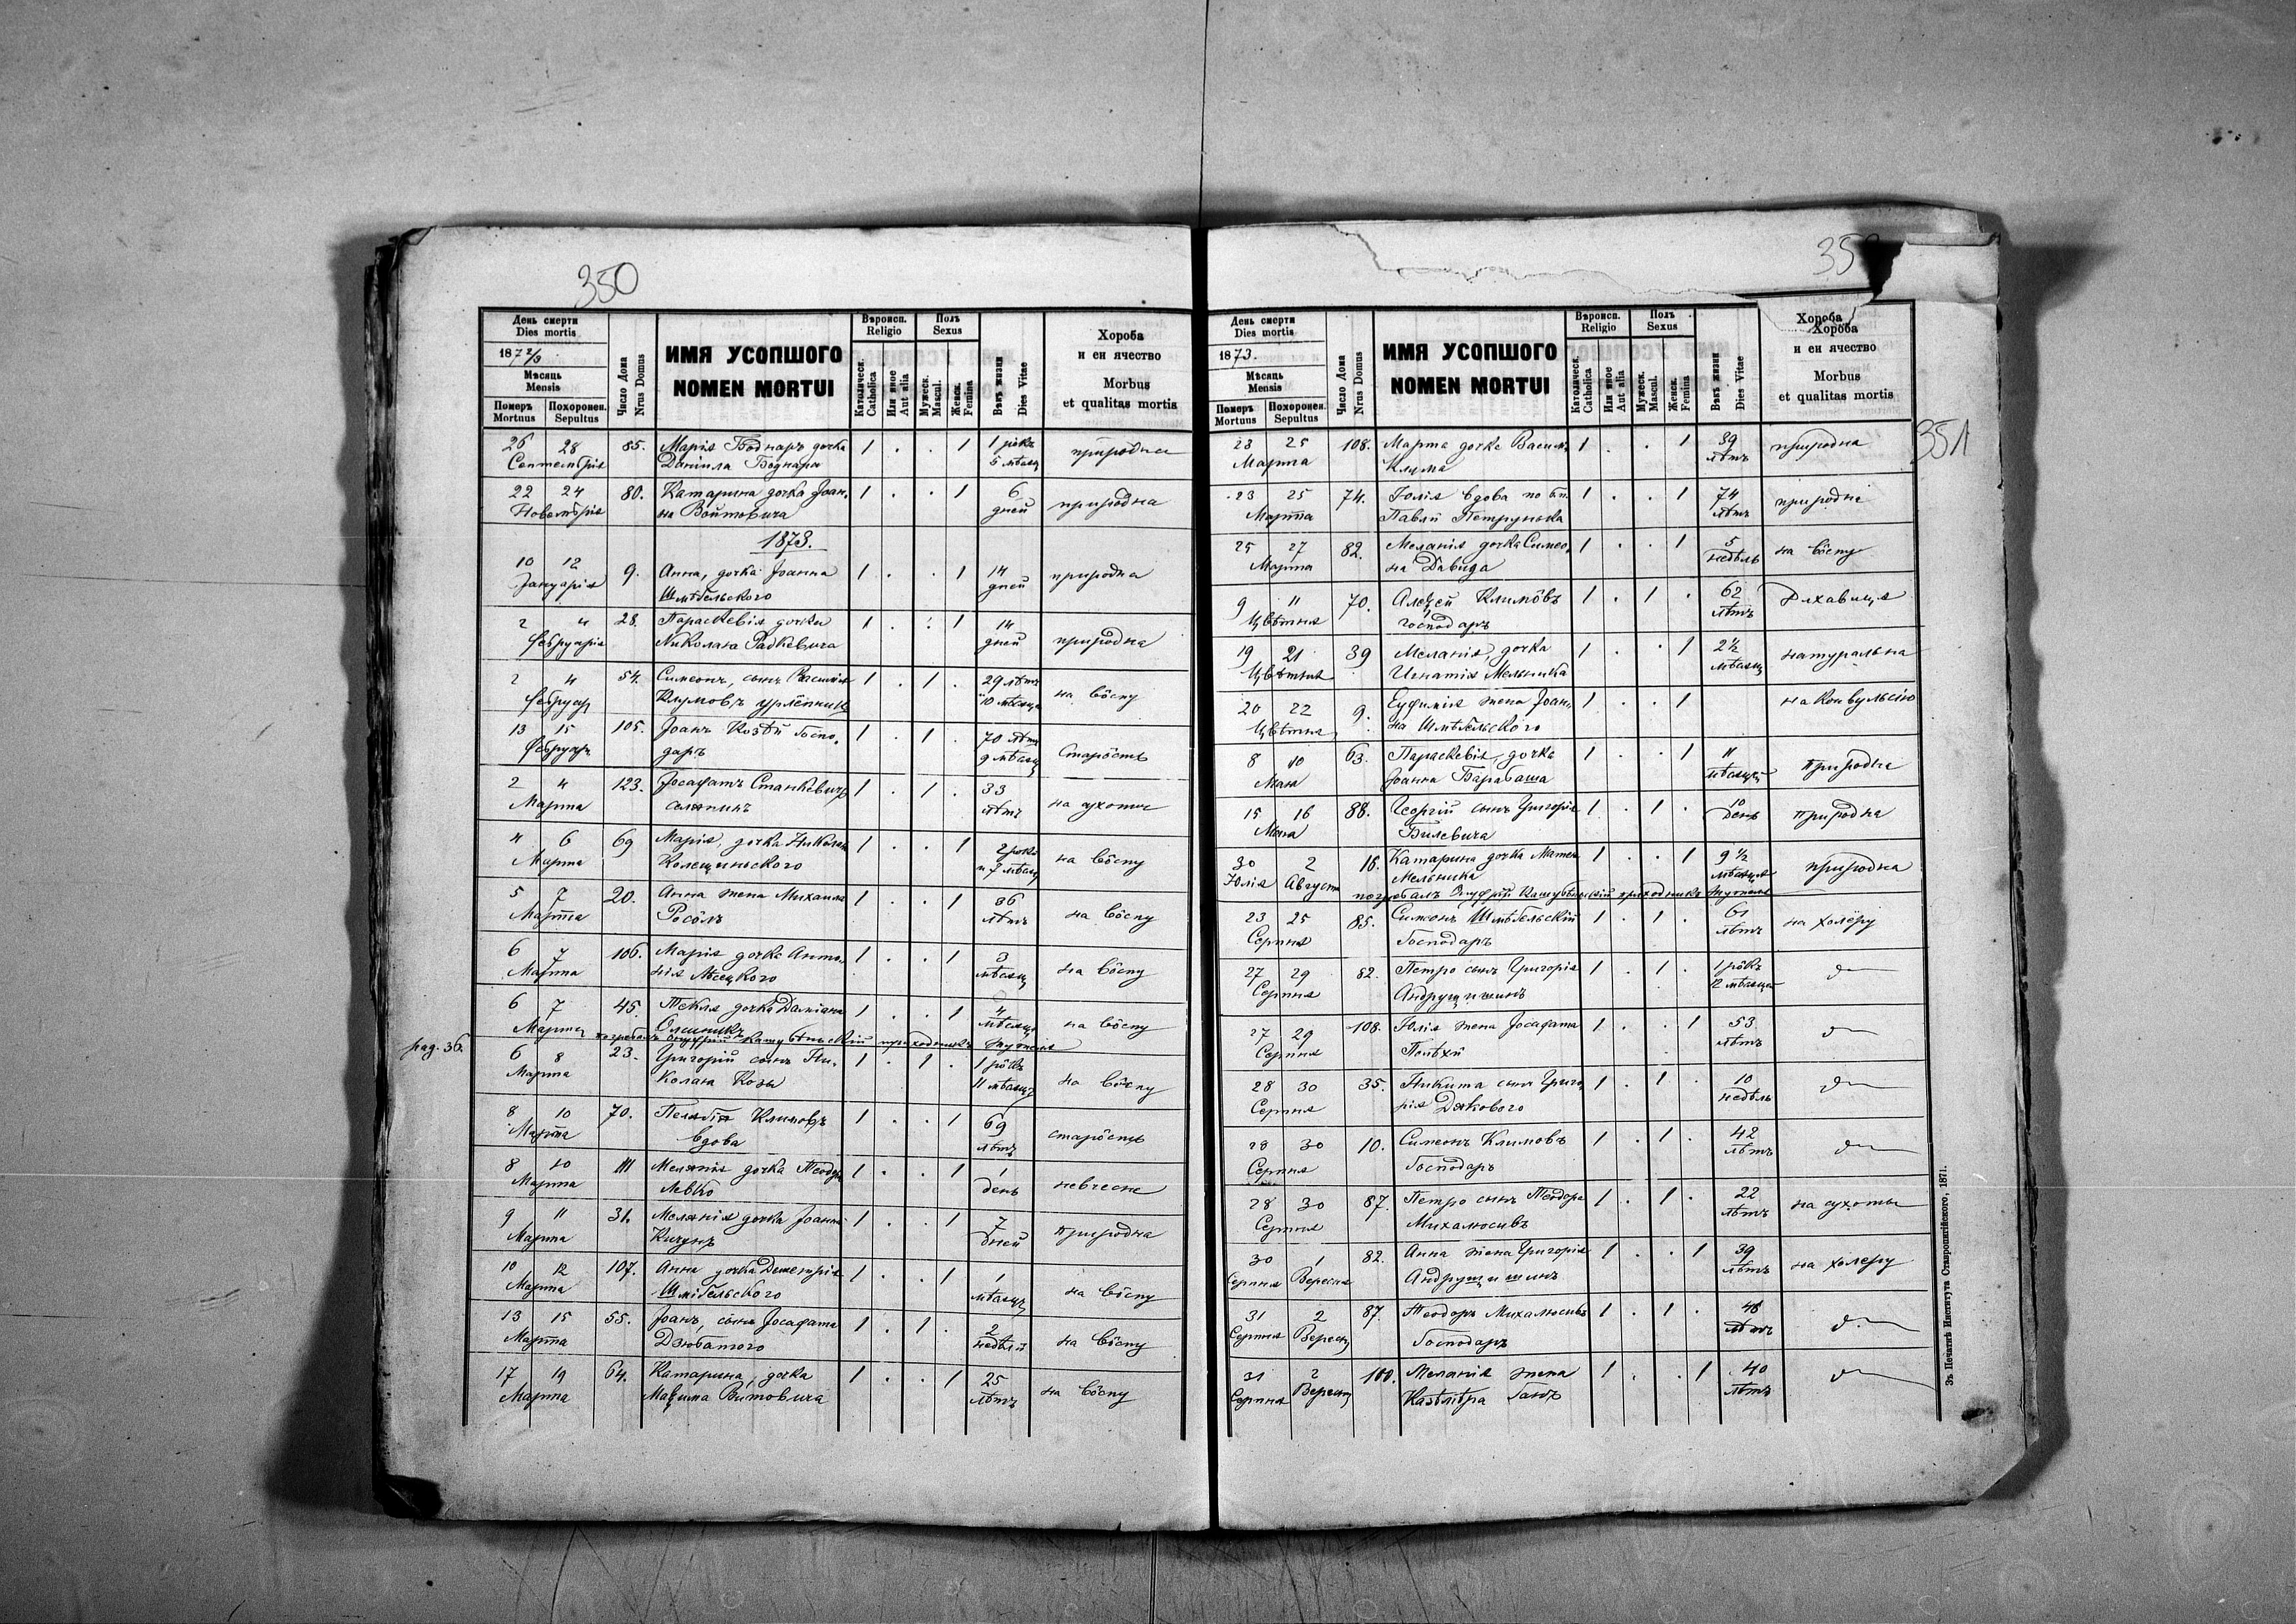 350
День смерти
Dies mortis
1872/3
Мѣсяць
Mensis
Померъ Похоронен.
Mortuus Sepultus
Число Дома
Nrus Domus
ИМЯ УСОПШОГО
NOMEN MORTUI
Вѣроисп.
Religio
Католическ.
Catholica
Или иное
Aut alia
Полъ
Sexus
Мужеск.
Mascul.
Женск.
Femina
Вѣкъ жизни
Dies Vitae
Хороба
и еи ячество
Morbus
et qualitas mortis
26 28 85. Марія Боднаръ дочка 1 . . 1 1 рôкъ природна
Септембрія Даніила Боднара 5 мѣсяц
22 24 80. Катарина дочка Іоан- 1 . . 1 6 природна
Новембрія на Войтовича дней
1873.
10 12 9. Анна, дочка Іоанна 1 . . 1 14 природна
Януарія Шмѣгельского дней
2 4 28. Параскевія дочка 1 . . 1 14 природна
Фебруарія Николая Радкевича дней
2 4 54. Симеонъ, сынъ Василія 1 . 1 . 29 лѣтъ на вôспу
Фебруар Климовъ урлêпникъ 10 мѣсяц
13 15 105. Іоанъ Козѣй Госпо- 1 . 1 . 70 лѣтъ старôсть
Фебруар даръ 9 мѣсяц
2 4 123. Іосафатъ Станкевичъ 1 . 1 . 33 на сухоты
Марта селянинъ лѣтъ
4 6 69 Марія, дочка Николая 1 . . 1 2 роки на вôспу
Марта и 7 мѣсяц
5 7 20. Анна жена Михаила 1 . . 1 36 на вôспу
Марта Росôлъ лѣтъ
6 7 106. Марія дочка Анто- 1 . . 1 3 на вôспу
Марта нія мѣсяц
6 7 45. Текля дочка Даміана 1 . . 1 4 на вôспу
Марта Олійникъ мѣсяц
погребалъ Онуфрій приходникъ
pag. 36.
6 8 23. Григорій сынъ Ни- 1 . 1 . 1 рôкъ на вôспу
Марта колая Козы 11 мѣсяц
8 10 70. Климовъ 1 . . 1 69 старôсть
Марта вдова лѣтъ
8 10 111 Меланія дочка Теодора 1 . . 1 1 невчесне
Марта Левко день
9 11 31. Меланія дочка Іоанна 1 . . 1 7 природна
Марта Кичунъ дней
10 12 107. Анна дочка Деметрія 1 . . 1 1 на вôспу
Марта Шмігельского мѣсяцъ
13 15 55. Іоанъ, сынъ Іосафата 1 . 1 . 2 на вôспу
Марта Дзюбатого недѣли
17 19 64. Катарина, дочка 1 . . 1 25 на вôспу
Марта Максима Витовича лѣтъ
351
День смерти
Dies mortis
1873.
Мѣсяць
Mensis
Померъ Похоронен.
Mortuus Sepultus
Число Дома
Nrus Domus
ИМЯ УСОПШОГО
NOMEN MORTUI
Вѣроисп.
Religio
Католическ.
Catholica
Или иное
Aut alia
Полъ
Sexus
Мужеск.
Mascul.
Женск.
Femina
Вѣкъ жизни
Dies Vitae
Хороба
Хороба
и еи ячество
Morbus
et qualitas mortis
23 25 108. Марта дочка Васил. 1 . . 1 39 природна
Марта Клима лѣтъ
23 25 74. Юлія вдова по бл. 1 . . 1 74 природна
Марта Павлѣ Петрунька лѣтъ
25 27 82. Меланія дочка Симео- 1 . . 1 5 на вôспу
Марта на Давида недѣль
9 11 70. Алексей Климôвъ 1 . 1 . 62 Дхавиця
Цвѣтня господаръ лѣтъ
19 21 39 Меланія, дочка 1 . . 1 2 1/2 натуральна
Цвѣтня Игнатія Мельника мѣсяц
20 22 9. Еуфимія жена Іоан- 1 . . 1 на конвульсію
Цвѣтня на Шмѣгельского
8 10 63. Параскевія, дочка 1 . . 1 11 природна
Мая Іоанна Барабаша мѣсяцѣй
15 16 88. Георгій сынъ Григорія 1 . 1 . 10 день природна
Мая Билевича
30 2 16. Катарина дочка Матея 1 . . 1 9 1/2 природна
Юлія Августа Мельника мѣсяця
погребалъ Онуфрій приходникъ
23 25 85. Симеонъ Шмѣгельскій 1 . 1 . 61 на холêру
Серпня Господаръ лѣтъ
27 29 82. Петро сынъ Григорія 1 . 1 . 1 рôкъ d—
Серпня Андрущишинъ 12 мѣсяця
27 29 108. Юлія жена Іосафата 1 . . 1 53 d—
Серпня лѣтъ
28 30 35. Никита сынъ Григо- 1 . 1 . 10 d—
Серпня рія Дякового недѣль
28 30 10. Симеонъ Климовъ 1 . 1 . 42 d—
Серпня Господаръ лѣтъ
28 30 87. Петро сынъ Теодора 1 . 1 . 22 на сухоты
Серпня Михалюсивъ лѣтъ
30 1 82. Анна жена Григорія 1 . . 1 39 на холеру
Серпня Вересня Андрущишинъ лѣтъ
31 2 87. Теодоръ Михалюсивъ 1 . 1 . 48 d—
Серпня Вересня Господаръ лѣтъ
31 2 100. Меланія жена 1 . . 1 40 d—
Серпня Вересня Казѣмѣра лѣтъ
Зъ Печатнѣ Института Ставропигійского, 1871.